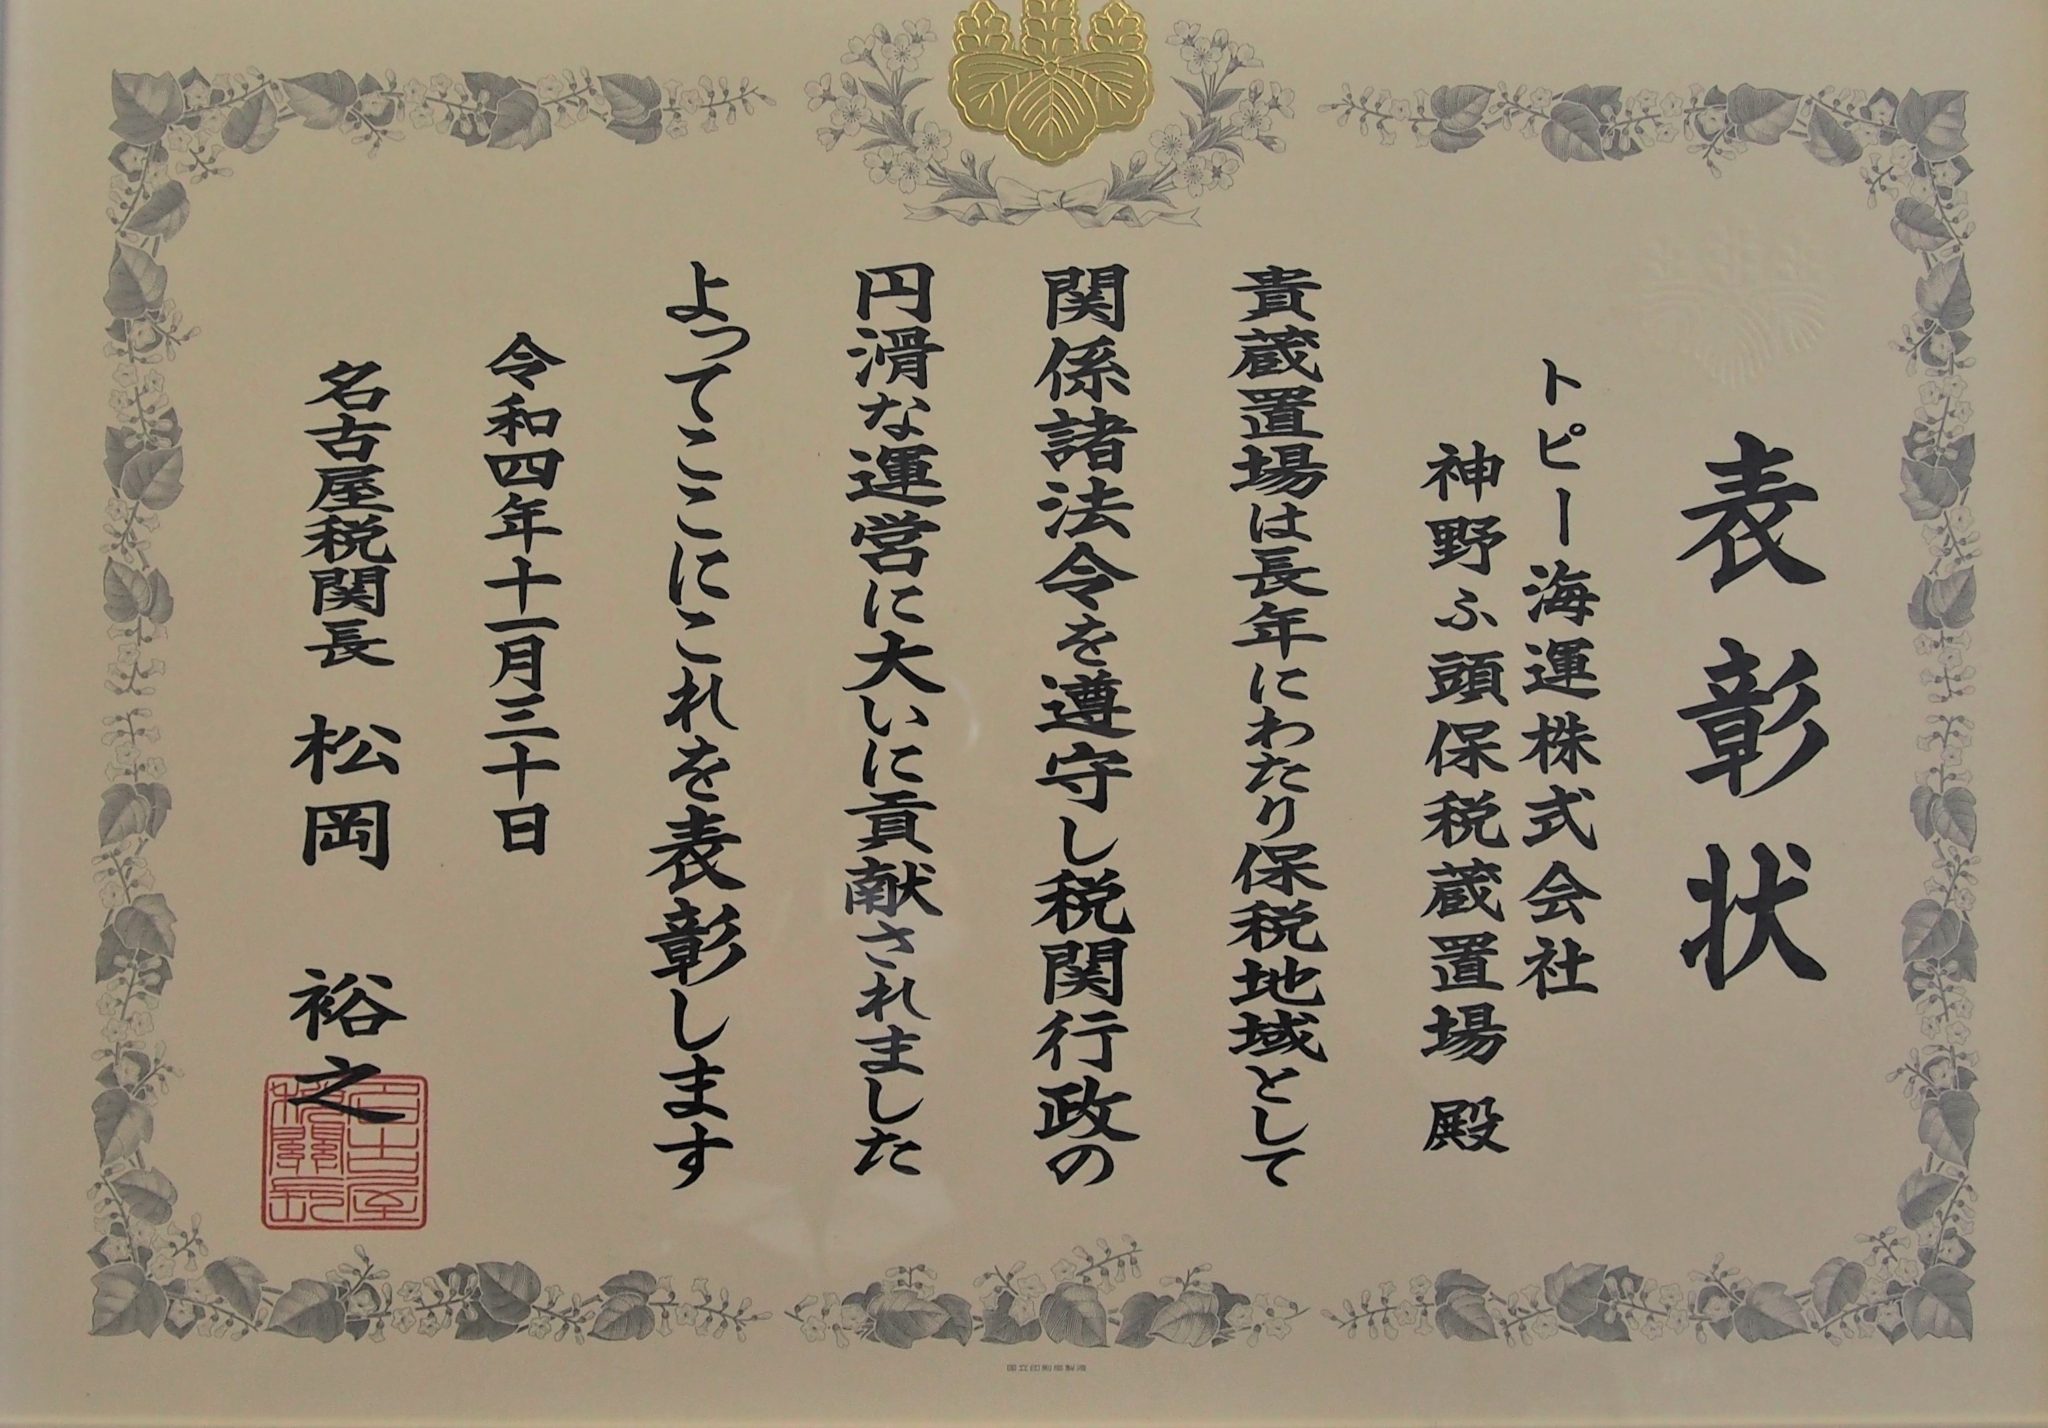 表彰状
トピー海運株式会社
神野ふ頭保税蔵置場 殿
貴蔵置場は長年にわたり保税地域として
関係諸法令を遵守し税関行政の
円滑な運営に大いに貢献されました
よってここにこれを表彰します
令和四年十一月三十日
名古屋税関長 松岡 裕之
名古屋税関長
国立印刷局製造